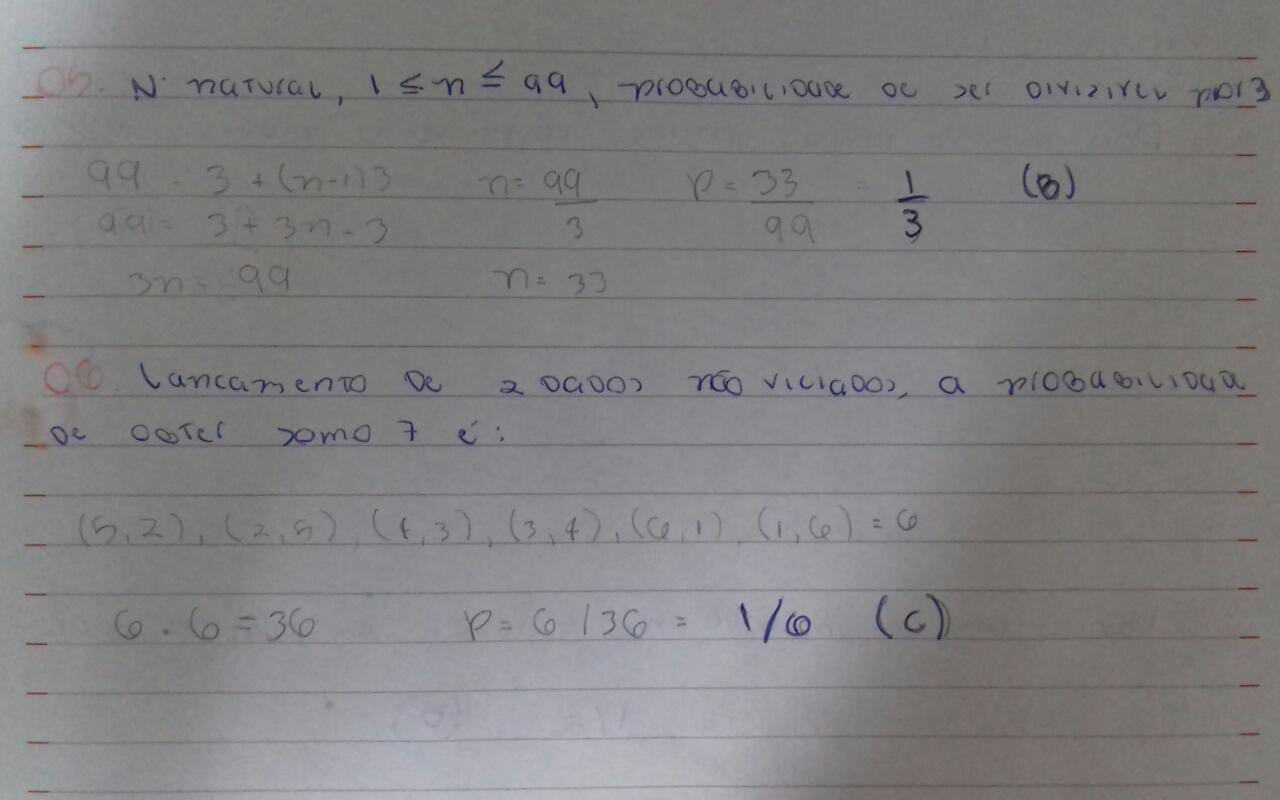 05. Nº natural, 1 ≤ n ≤ 99, probabilidade de ser divizivel por 3
99 = 3 + (n-1)3 n = 99/3 p = 33/99 = 1/3 (B)
99 = 3 + 3n - 3
3n = 99 n = 33
06. Lancamento de 2 dados não viciados, a probabilidade
de obter soma 7 é:
(5,2), (2,5), (4,3), (3,4), (6,1) (1,6) = 6
6 . 6 = 36 p = 6/36 = 1/6 (C)